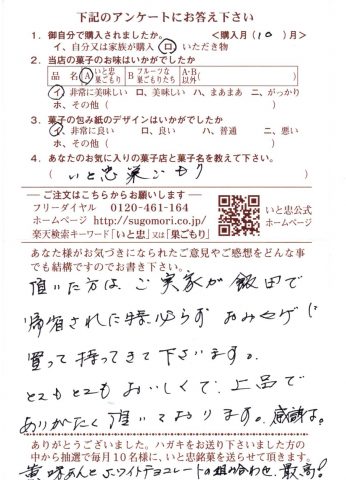 下記のアンケートにお答え下さい
1. 御自分で購入されましたか。 <購入月(10)月>
イ、自分又は家族が購入 ロ、いただき物
2. 当店の菓子のお味はいかがでしたか
品名 A いと忠巣ごもり B フルーツな巣ごもりたち A・B以外( )
イ、非常に美味しい ロ、美味しい ハ、まあまあ ニ、がっかり
ホ、その他( )
3. 菓子の包み紙のデザインはいかがでしたか
イ、非常に良い ロ、良い ハ、普通 ニ、悪い
ホ、その他( )
4. あなたのお気に入りの菓子店と菓子名を教えて下さい。
(いと忠 巣ごもり )
ご注文はこちらからお願いします
フリーダイヤル 0120-461-164
ホームページ http://sugomori.co.jp/
楽天検索キーワード「いと忠」又は「巣ごもり」
いと忠公式
ホームページ
あなた様がお気づきになられたご意見やご感想をどんな事
でも結構ですのでお書き下さい。
頂いた方は、ご実家が飯田で
帰省された時必らず おみやげに
買って持ってきて下さいます。
とてもとても おいしくて、上品で
ありがたく頂いております。感謝。
ありがとうございました。ハガキをお送り下さいました方の
中から抽選で毎月10名様に、いと忠銘菓を送らせて頂きます。
黄味あんとホワイトチョコレートの組み合わせ、最高!